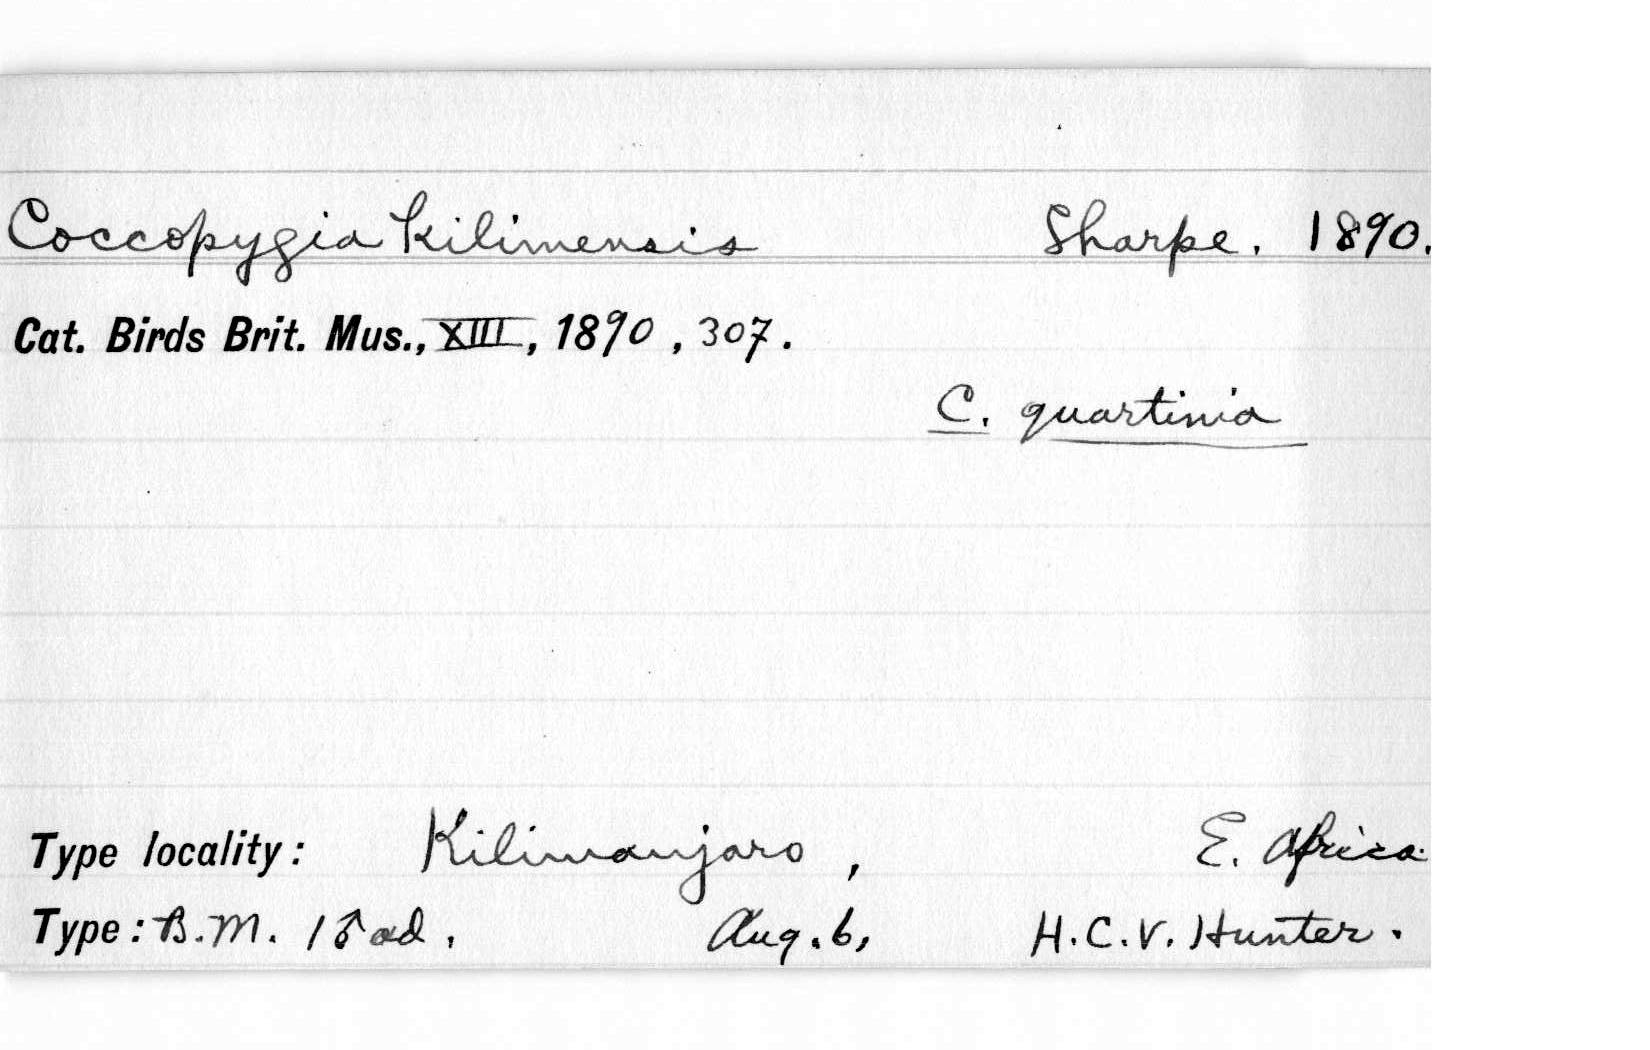 Coccopygia kilimensis Sharpe. 1890.
Cat. Birds Brit. Mus., XIII, 1890, 307.
C. quartinia
Type locality: Kilimanjaro, E. Africa.
Type: B.M. 1 ♂ ad. Aug. 6, H.C.V. Hunter.